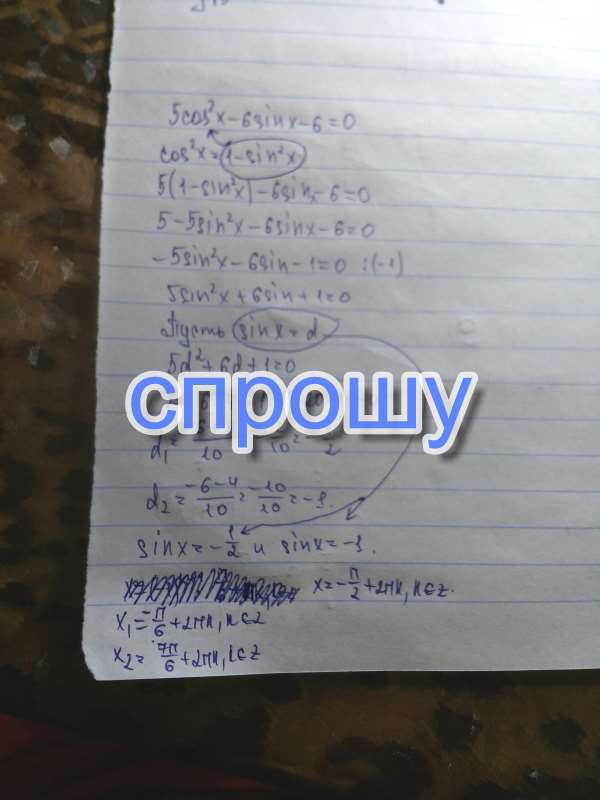 5cos²x-6sinx-6=0
cos²x=1-sin²x
5(1-sin²x)-6sinx-6=0
5-5sin²x-6sinx-6=0
-5sin²x-6sin-1=0 :(-1)
5sin²x+6sin+1=0
Пусть sinx=d
5d²+6d+1=0
спрошу
d₂=(-6-4)/10=-10/10=-1.
sinx=-1/2 и sinx=-1.
x=-π/2+2πn, n∈z.
x₁=-π/6+2πn, n∈z
x₂=7π/6+2πn, n∈z